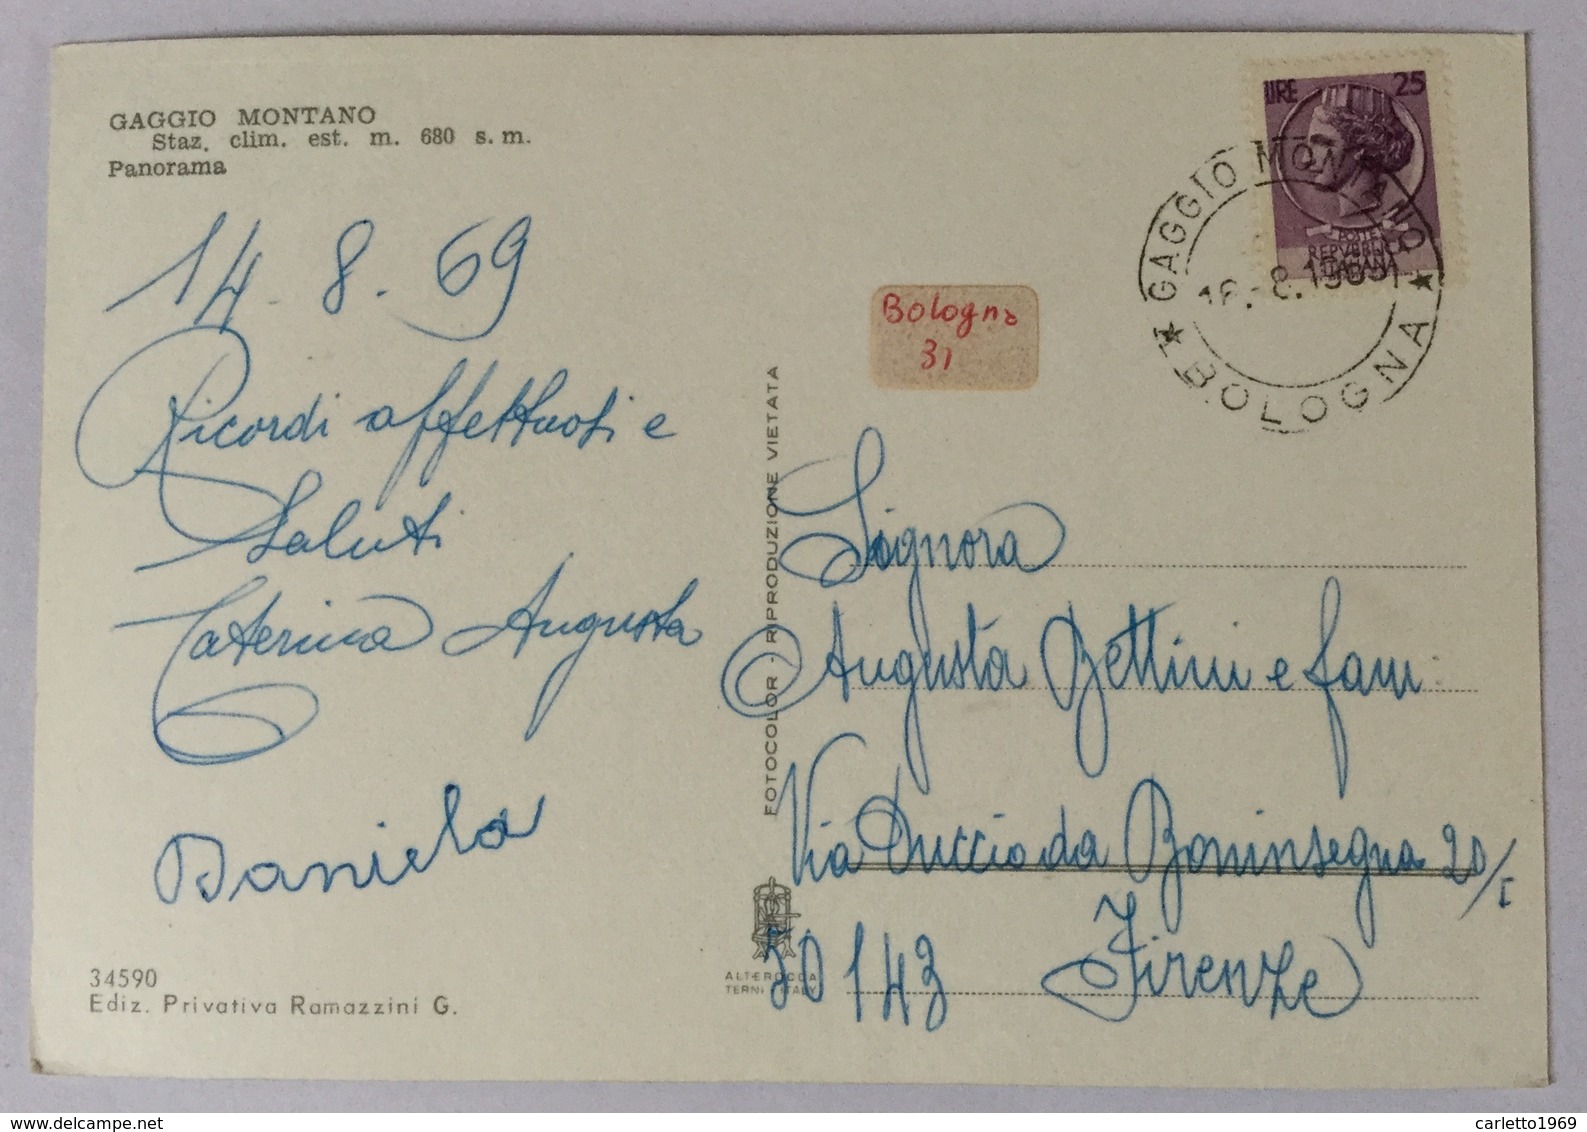 GAGGIO MONTANO
Staz. clim. est. m. 680 s. m.
Panorama
14. 8. 69
Ricordi affettuosi e
Saluti
Caterina Augusta
Daniela
34590
Ediz. Privativa Ramazzini G.
FOTOCOLOR - RIPRODUZIONE VIETATA
ALTEROCCA
TERNI - ITALY
LIRE 25
POSTE
REPVBBLICA
ITALIANA
GAGGIO MONTANO
16.-8.1969
★ BOLOGNA ★
Bologna
31
Signora
Augusta Bettini e fam
Via Duccio da Boninsegna 20/I
50143 Firenze
carletto1969